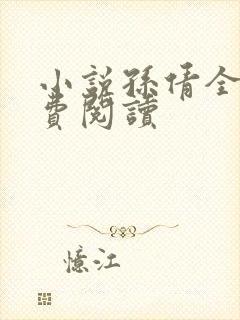 小説孫倩全
費閱讀
憶江